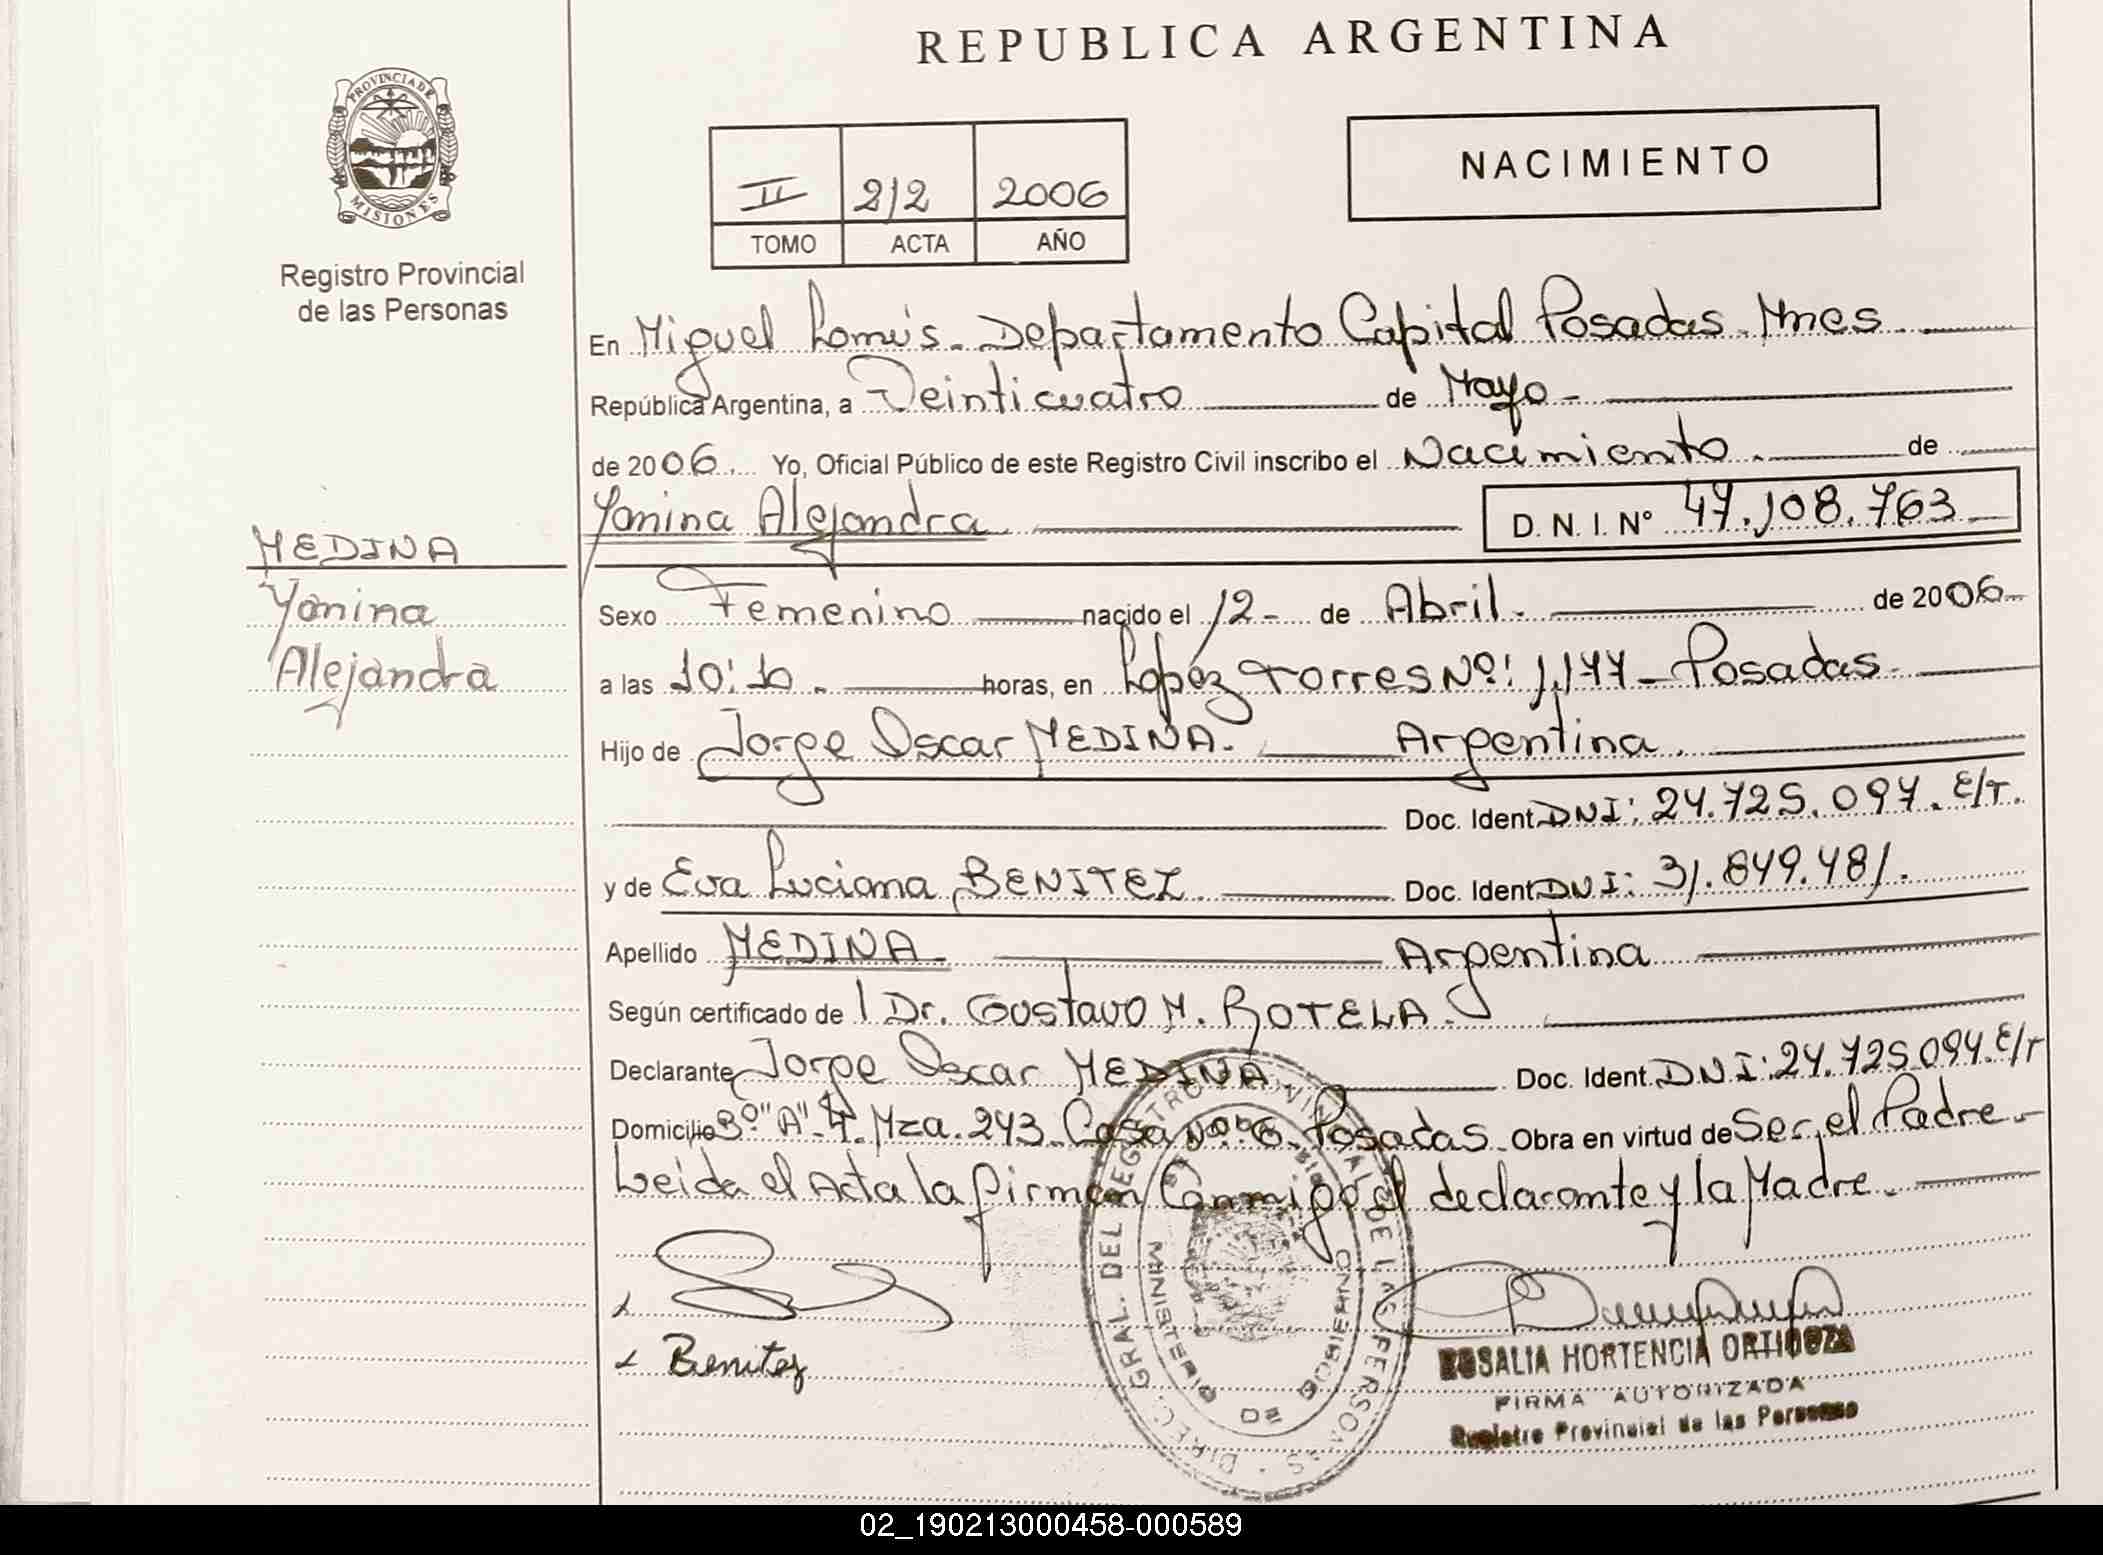 REPUBLICA ARGENTINA
PROVINCIA DE MISIONES
Registro Provincial
de las Personas
II 212 2006
TOMO ACTA AÑO
NACIMIENTO
En Miguel Lanús. Departamento Capital Posadas. Mnes
República Argentina, a Veinticuatro de Mayo -
de 2006. Yo, Oficial Público de este Registro Civil inscribo el Nacimiento. de
Yanina Alejandra D. N. I. Nº 47.108.763
MEDINA
Yanina
Alejandra
Sexo Femenino nacido el 12- de Abril. de 2006-
a las 10:10. horas, en López Torres Nº: 1.177- Posadas.
Hijo de Jorge Oscar MEDINA. Argentina.
Doc. Ident. DNI: 24.725.097. E/T.
y de Eva Luciana BENITEZ. Doc. Ident. DNI: 31.849.481.
Apellido MEDINA Argentina
Según certificado de Dr. Gustavo M. ROTELA.
Declarante Jorge Oscar MEDINA. Doc. Ident. DNI: 24.725.097. E/T
Domicilio Mza. 243. Casa Nº 6- Posadas. Obra en virtud de Ser el Padre-
Leida el Acta la firman Conmigo el declarante y la Madre.
Benitez
DIREC. GRAL. DEL REGISTRO PROVINCIAL DE LAS PERSONAS
MINISTERIO DE GOBIERNO
ROSALIA HORTENCIA ORTIGOZA
FIRMA AUTORIZADA
Registro Provincial de las Personas
02_190213000458-000589